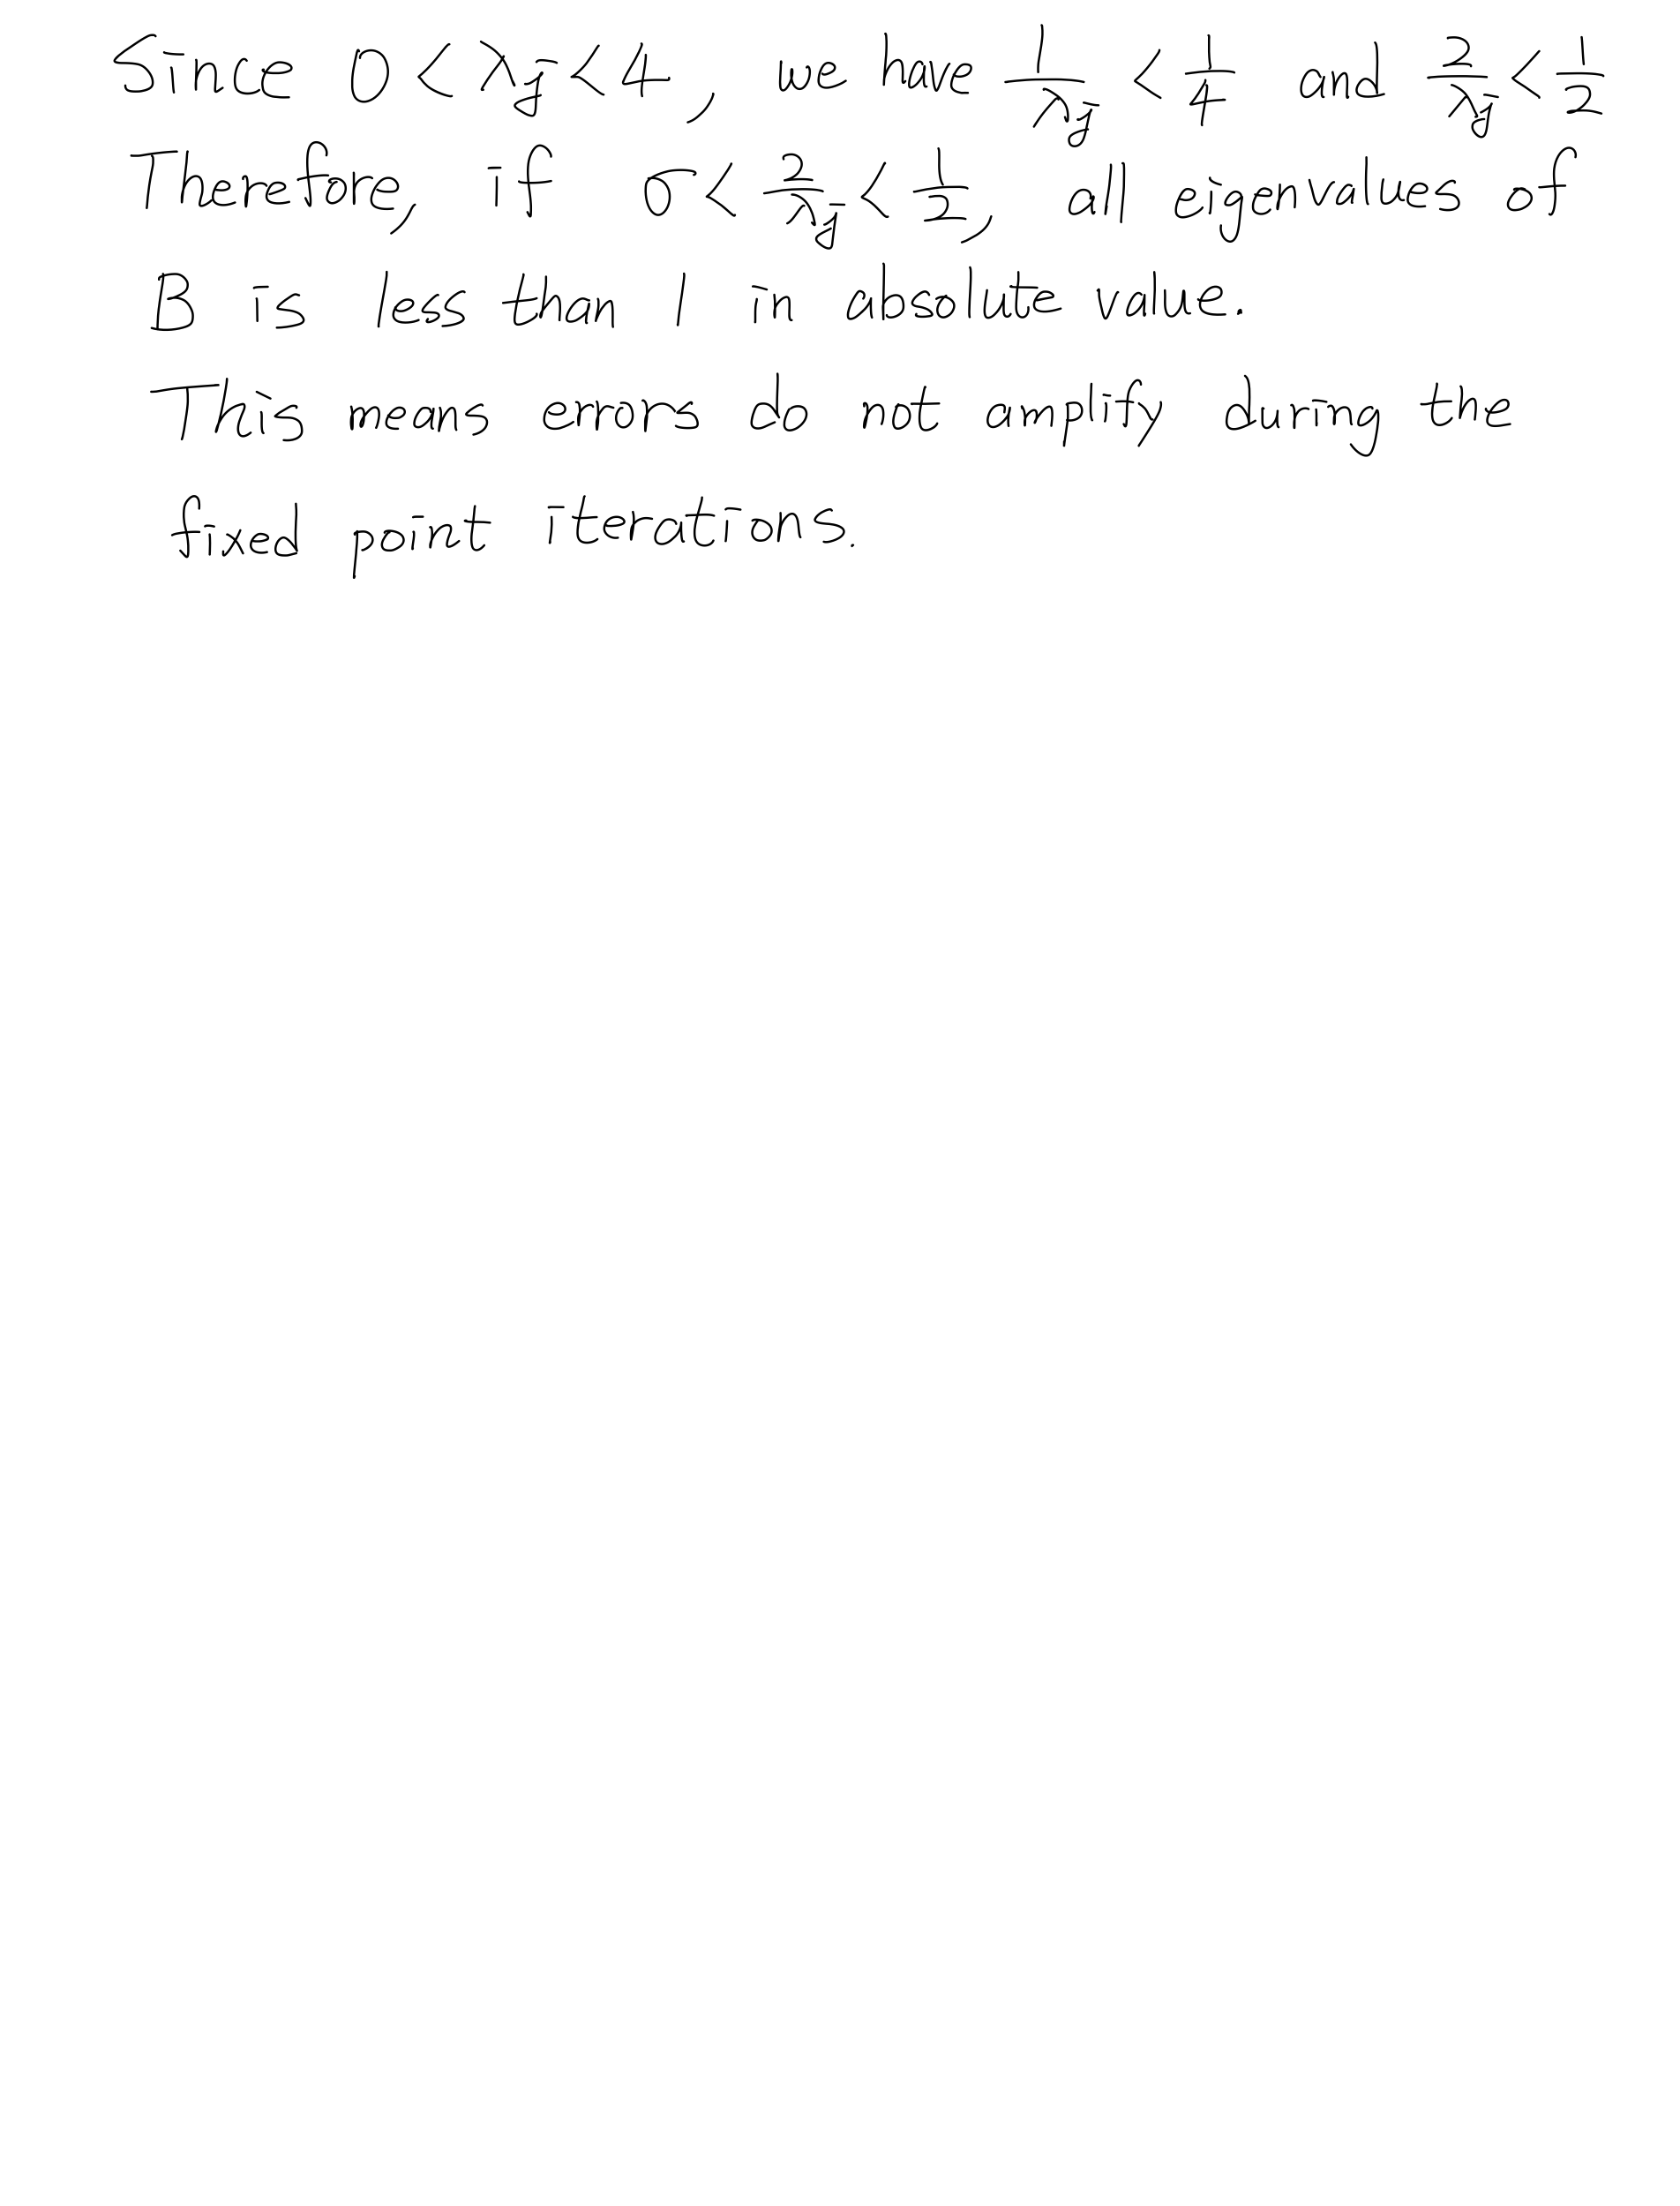 Since 0 < λj < 4, we have 1/λj < 1/4 and 2/λj < 1/2
Therefore, if σ < 2/λj < 1/2, all eigenvalues of
B is less than 1 in absolute value.
This means errors do not amplify during the
fixed point iterations.